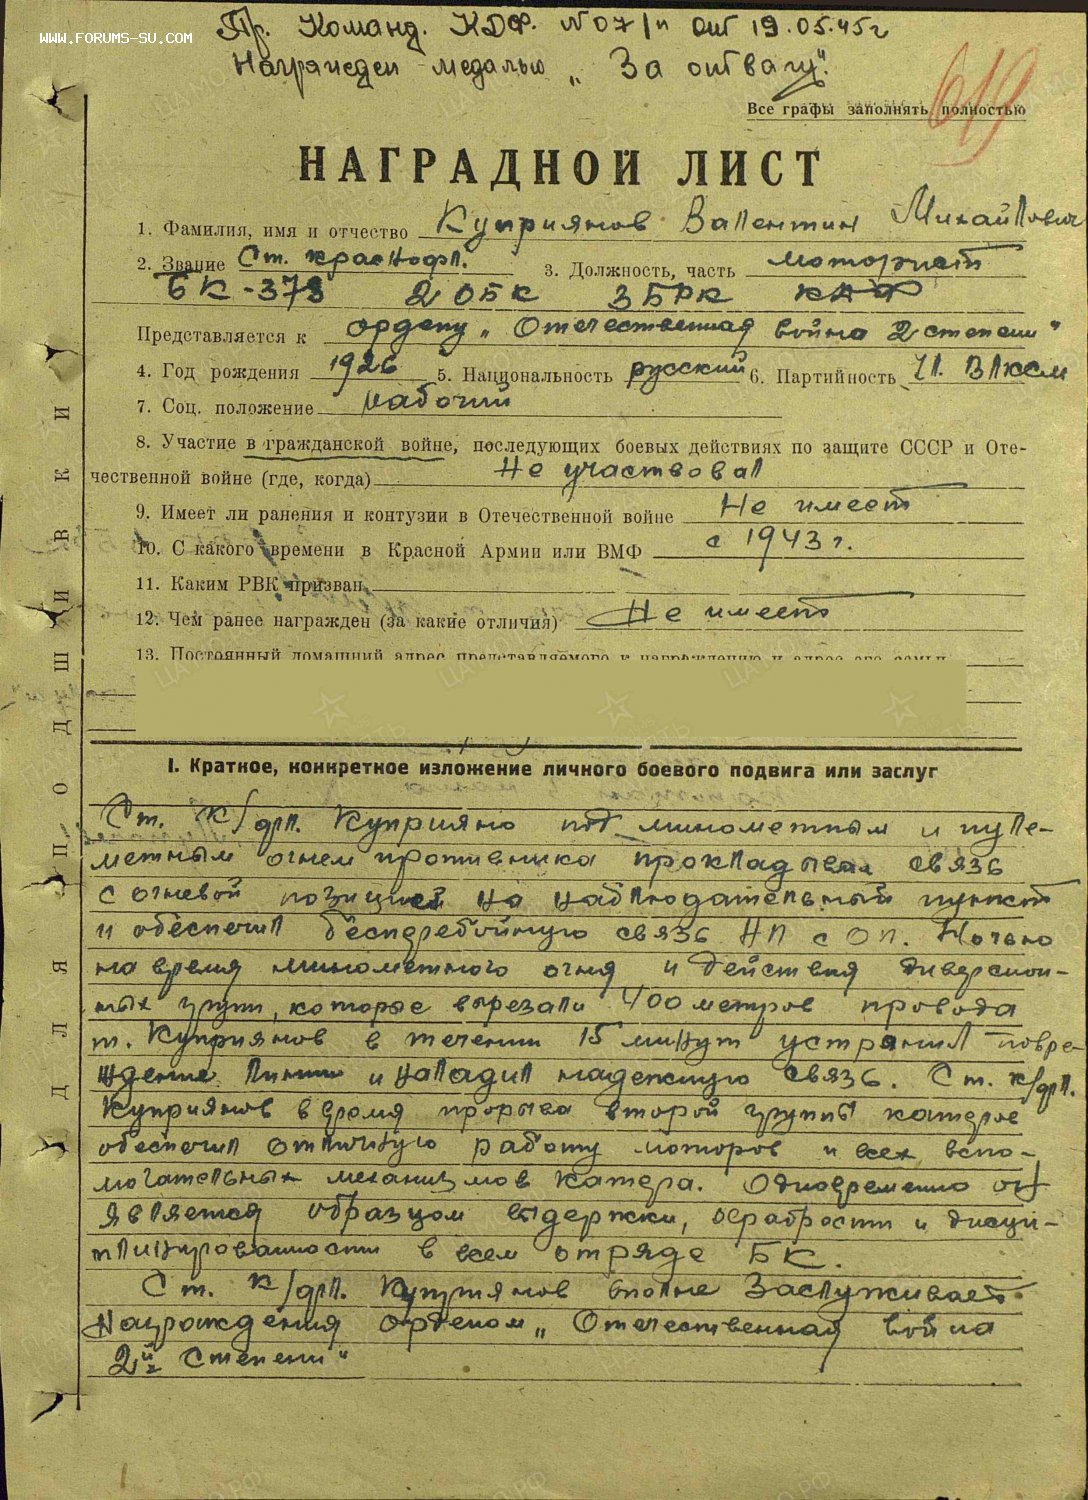 WWW.FORUMS-SU.COM
Пр. Команд. КДФ. N 07/н от 19.05.45г
Награжден медалью „За отвагу".
619
Все графы заполнять полностью
НАГРАДНОЙ ЛИСТ
1. Фамилия, имя и отчество Куприянов Валентин Михайлович
2. Звание Ст. краснофл. 3. Должность, часть моторист
БК-373 2 ОБК 3 БРК КДФ
Представляется к ордену „Отечественная война 2 степени"
4. Год рождения 1926 5. Национальность русский 6. Партийность Чл. ВЛКСМ
7. Соц. положение рабочий
8. Участие в гражданской войне, последующих боевых действиях по защите СССР и Оте-
чественной войне (где, когда) Не участвовал
9. Имеет ли ранения и контузии в Отечественной войне Не имеет
10. С какого времени в Красной Армии или ВМФ с 1943 г.
11. Каким РВК призван
12. Чем ранее награжден (за какие отличия) Не имеет
13. Постоянный домашний адрес представляемого к награждению и адрес его семьи
I. Краткое, конкретное изложение личного боевого подвига или заслуг
Ст. к/фл. Куприяно под минометным и пуле-
метным огнем противника прокладывал связь
с огневой позицией на наблюдательный пункт
и обеспечил бесперебойную связь НП с ОП. Ночью
на время минометного огня и действия диверсион-
ных групп, которые вырезали 400 метров провода
т. Куприянов в течении 15 минут устранил повре-
ждение линии и наладил надежную связь. Ст. к/фл.
Куприянов в время прорыва второй группы катеров
обеспечил отличную работу моторов и всех вспо-
могательных механизмов катера. Одновременно он
является образцом выдержки, храбрости и дисци-
плинированности в всем отряде БК.
Ст. к/фл. Куприянов вполне заслуживает
награждения орденом „Отечественная война
2й степени"
ДЛЯ ПОДШИВКИ